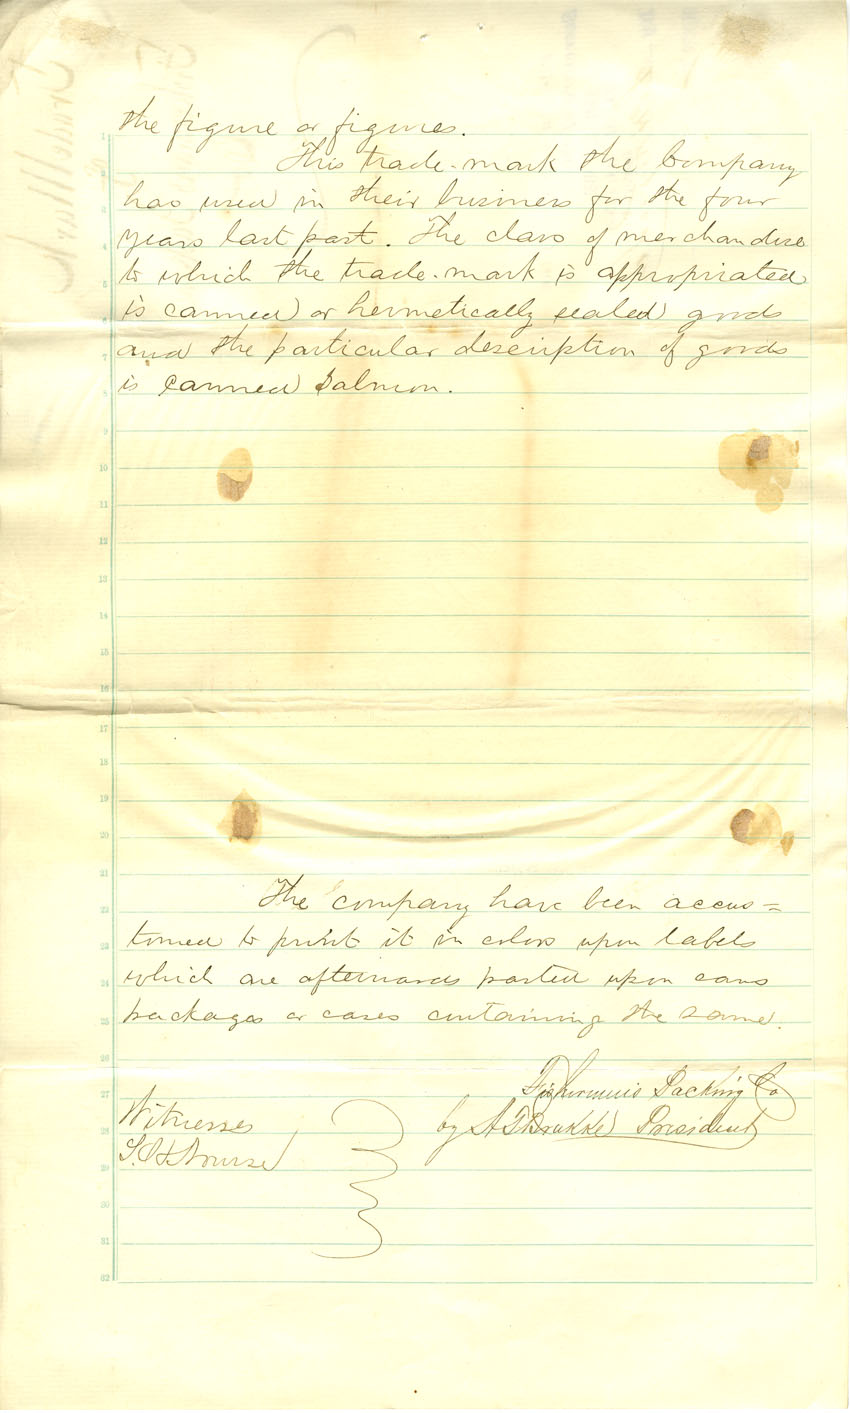 the figure or figures.
This trade-mark the Company
has used in their business for the four
years last past. The class of merchandise
to which the trade-mark is appropriated
is canned or hermetically sealed goods
and the particular description of goods
is canned Salmon.
The company have been accus=
tomed to print it in colors upon labels
which are afterwards pasted upon cans
packages or cases containing the same.
Fishermen's Packing Co
by President
Witnesses
1
2
3
4
5
6
7
8
9
10
11
12
13
14
15
16
17
18
19
20
21
22
23
24
25
26
27
28
29
30
31
32